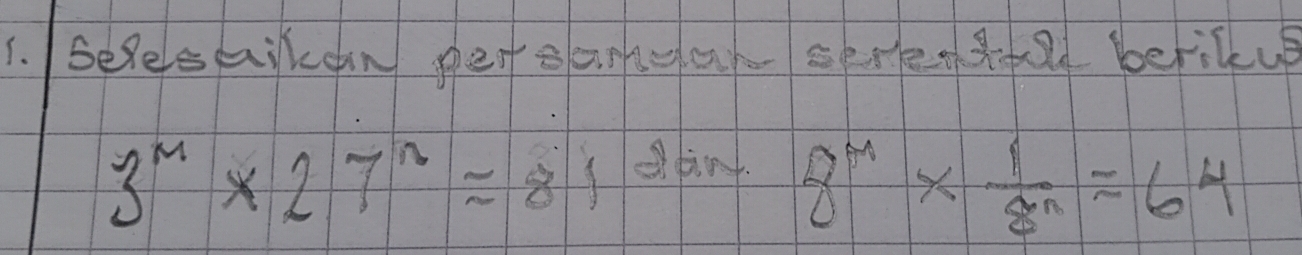 1. Selesaikan persamaan serentak berikut
3^m × 27^n = 81 dan 8^m × 1/8^n = 64